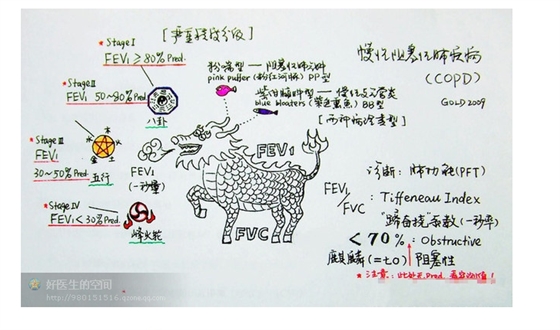 [严重程度分级]
* Stage I
FEV₁ ≥ 80% Pred.
* Stage II
FEV₁ 50~80% Pred.
八卦
* Stage III
FEV₁
30~50% Pred.
木
水
火
金
土
五行
* Stage IV
FEV₁ < 30% Pred.
烽火轮
粉喘型 — 阻塞性肺气肿
pink puffer (粉红河豚) PP型
紫绀臃肿型 — 慢性支气管炎
blue bloaters (紫色熏鱼) BB型
[两种病理类型]
慢性阻塞性肺疾病
(COPD)
GOLD 2009
FEV₁
(一秒量)
FEV₁
FVC
诊断: 肺功能(PFT)
FEV₁/FVC : Tiffeneau Index
"蹄白挠"系数(一秒率)
< 70% : Obstructive
麒麟(=70) 阻塞性
* 注意: Pred.
好医生的空间
http://980151516.qzone.qq.com